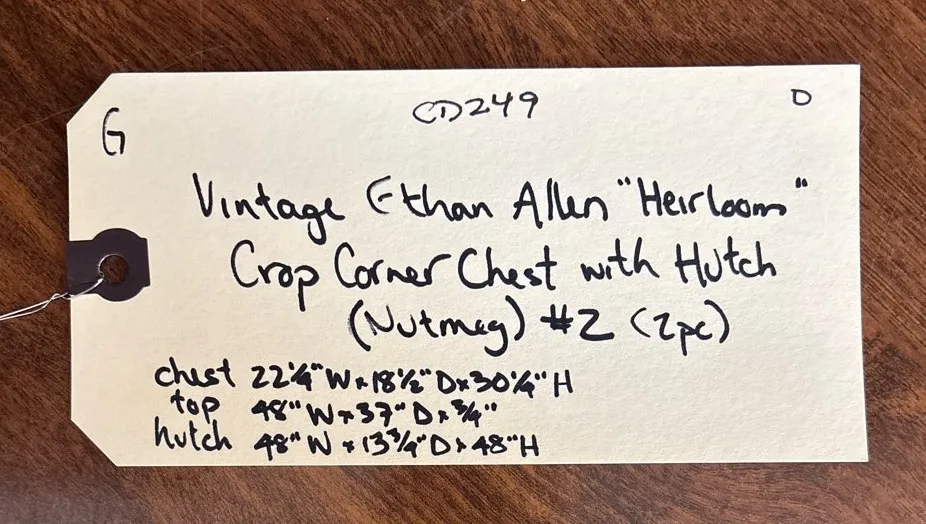 G CD249 O
Vintage Ethan Allen "Heirloom"
Crop Corner Chest with Hutch
(Nutmeg) #2 (2pc)
chest 22¼" W x 18½" D x 30¼" H
top 48" W x 37" D x ¾"
hutch 48" W x 13¾" D x 48" H